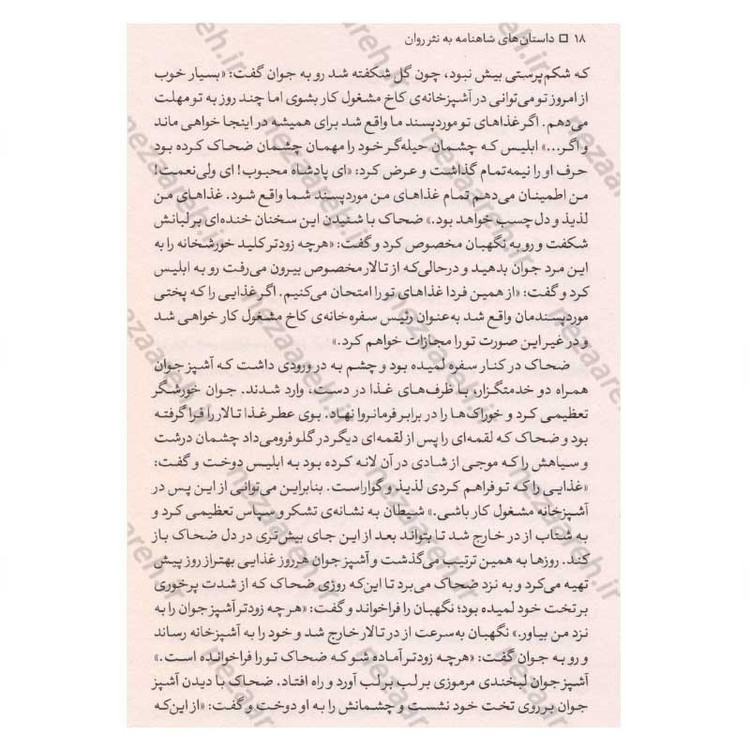 ۱۸ □ داستان‌های شاهنامه به نثر روان
که شکم‌پرستی بیش نبود، چون گل شکفته شد رو به جوان گفت: «بسیار خوب
از امروز تو می‌توانی در آشپزخانه‌ی کاخ مشغول کار بشوی اما چند روز به تو مهلت
می‌دهم. اگر غذاهای تو موردپسند ما واقع شد برای همیشه در اینجا خواهی ماند
و اگر...» ابلیس که چشمان حیله‌گر خود را مهمان چشمان ضحاک کرده بود
حرف او را نیمه‌تمام گذاشت و عرض کرد: «ای پادشاه محبوب! ای ولی‌نعمت!
من اطمینان می‌دهم تمام غذاهای من موردپسند شما واقع شود. غذاهای من
لذیذ و دل‌چسب خواهد بود.» ضحاک با شنیدن این سخنان خنده‌ای بر لبانش
شکفت و رو به نگهبان مخصوص کرد و گفت: «هرچه زودتر کلید خورشخانه را به
این مرد جوان بدهید و درحالی‌که از تالار مخصوص بیرون می‌رفت رو به ابلیس
کرد و گفت: «از همین فردا غذاهای تو را امتحان می‌کنیم. اگر غذایی را که پختی
موردپسندمان واقع شد به‌عنوان رئیس سفره‌خانه‌ی کاخ مشغول کار خواهی شد
و در غیر این صورت تو را مجازات خواهم کرد.»
ضحاک در کنار سفره لمیده بود و چشم به در ورودی داشت که آشپز جوان
همراه دو خدمتگزار، با ظرف‌های غذا در دست، وارد شدند. جوان خورشگر
تعظیمی کرد و خوراک‌ها را در برابر فرمانروا نهاد. بوی عطر غذا تالار را فرا گرفته
بود و ضحاک که لقمه‌ای را پس از لقمه‌ای دیگر در گلو فرو می‌داد چشمان درشت
و سیاهش را که موجی از شادی در آن لانه کرده بود به ابلیس دوخت و گفت:
«غذایی را که تو فراهم کردی لذیذ و گوار است. بنابراین می‌توانی از این پس در
آشپزخانه مشغول کار باشی.» شیطان به نشانه‌ی تشکر و سپاس تعظیمی کرد و
به شتاب از در خارج شد تا بتواند بعد از این جای بیش‌تری در دل ضحاک باز
کند. روزها به همین ترتیب می‌گذشت و آشپز جوان هر روز غذایی بهتر از روز پیش
تهیه می‌کرد و به نزد ضحاک می‌برد تا این‌که روزی ضحاک که از شدت پرخوری
بر تخت خود لمیده بود؛ نگهبان را فراخواند و گفت: «هرچه زودتر آشپز جوان را به
نزد من بیاور.» نگهبان به‌سرعت از در تالار خارج شد و خود را به آشپزخانه رساند
و رو به جوان گفت: «هرچه زودتر آماده شو که ضحاک تو را فراخوانده است.»
آشپز جوان لبخندی مرموزی بر لب بر لب آورد و راه افتاد. ضحاک با دیدن آشپز
جوان بر روی تخت خود نشست و چشمانش را به او دوخت و گفت: «از این‌که